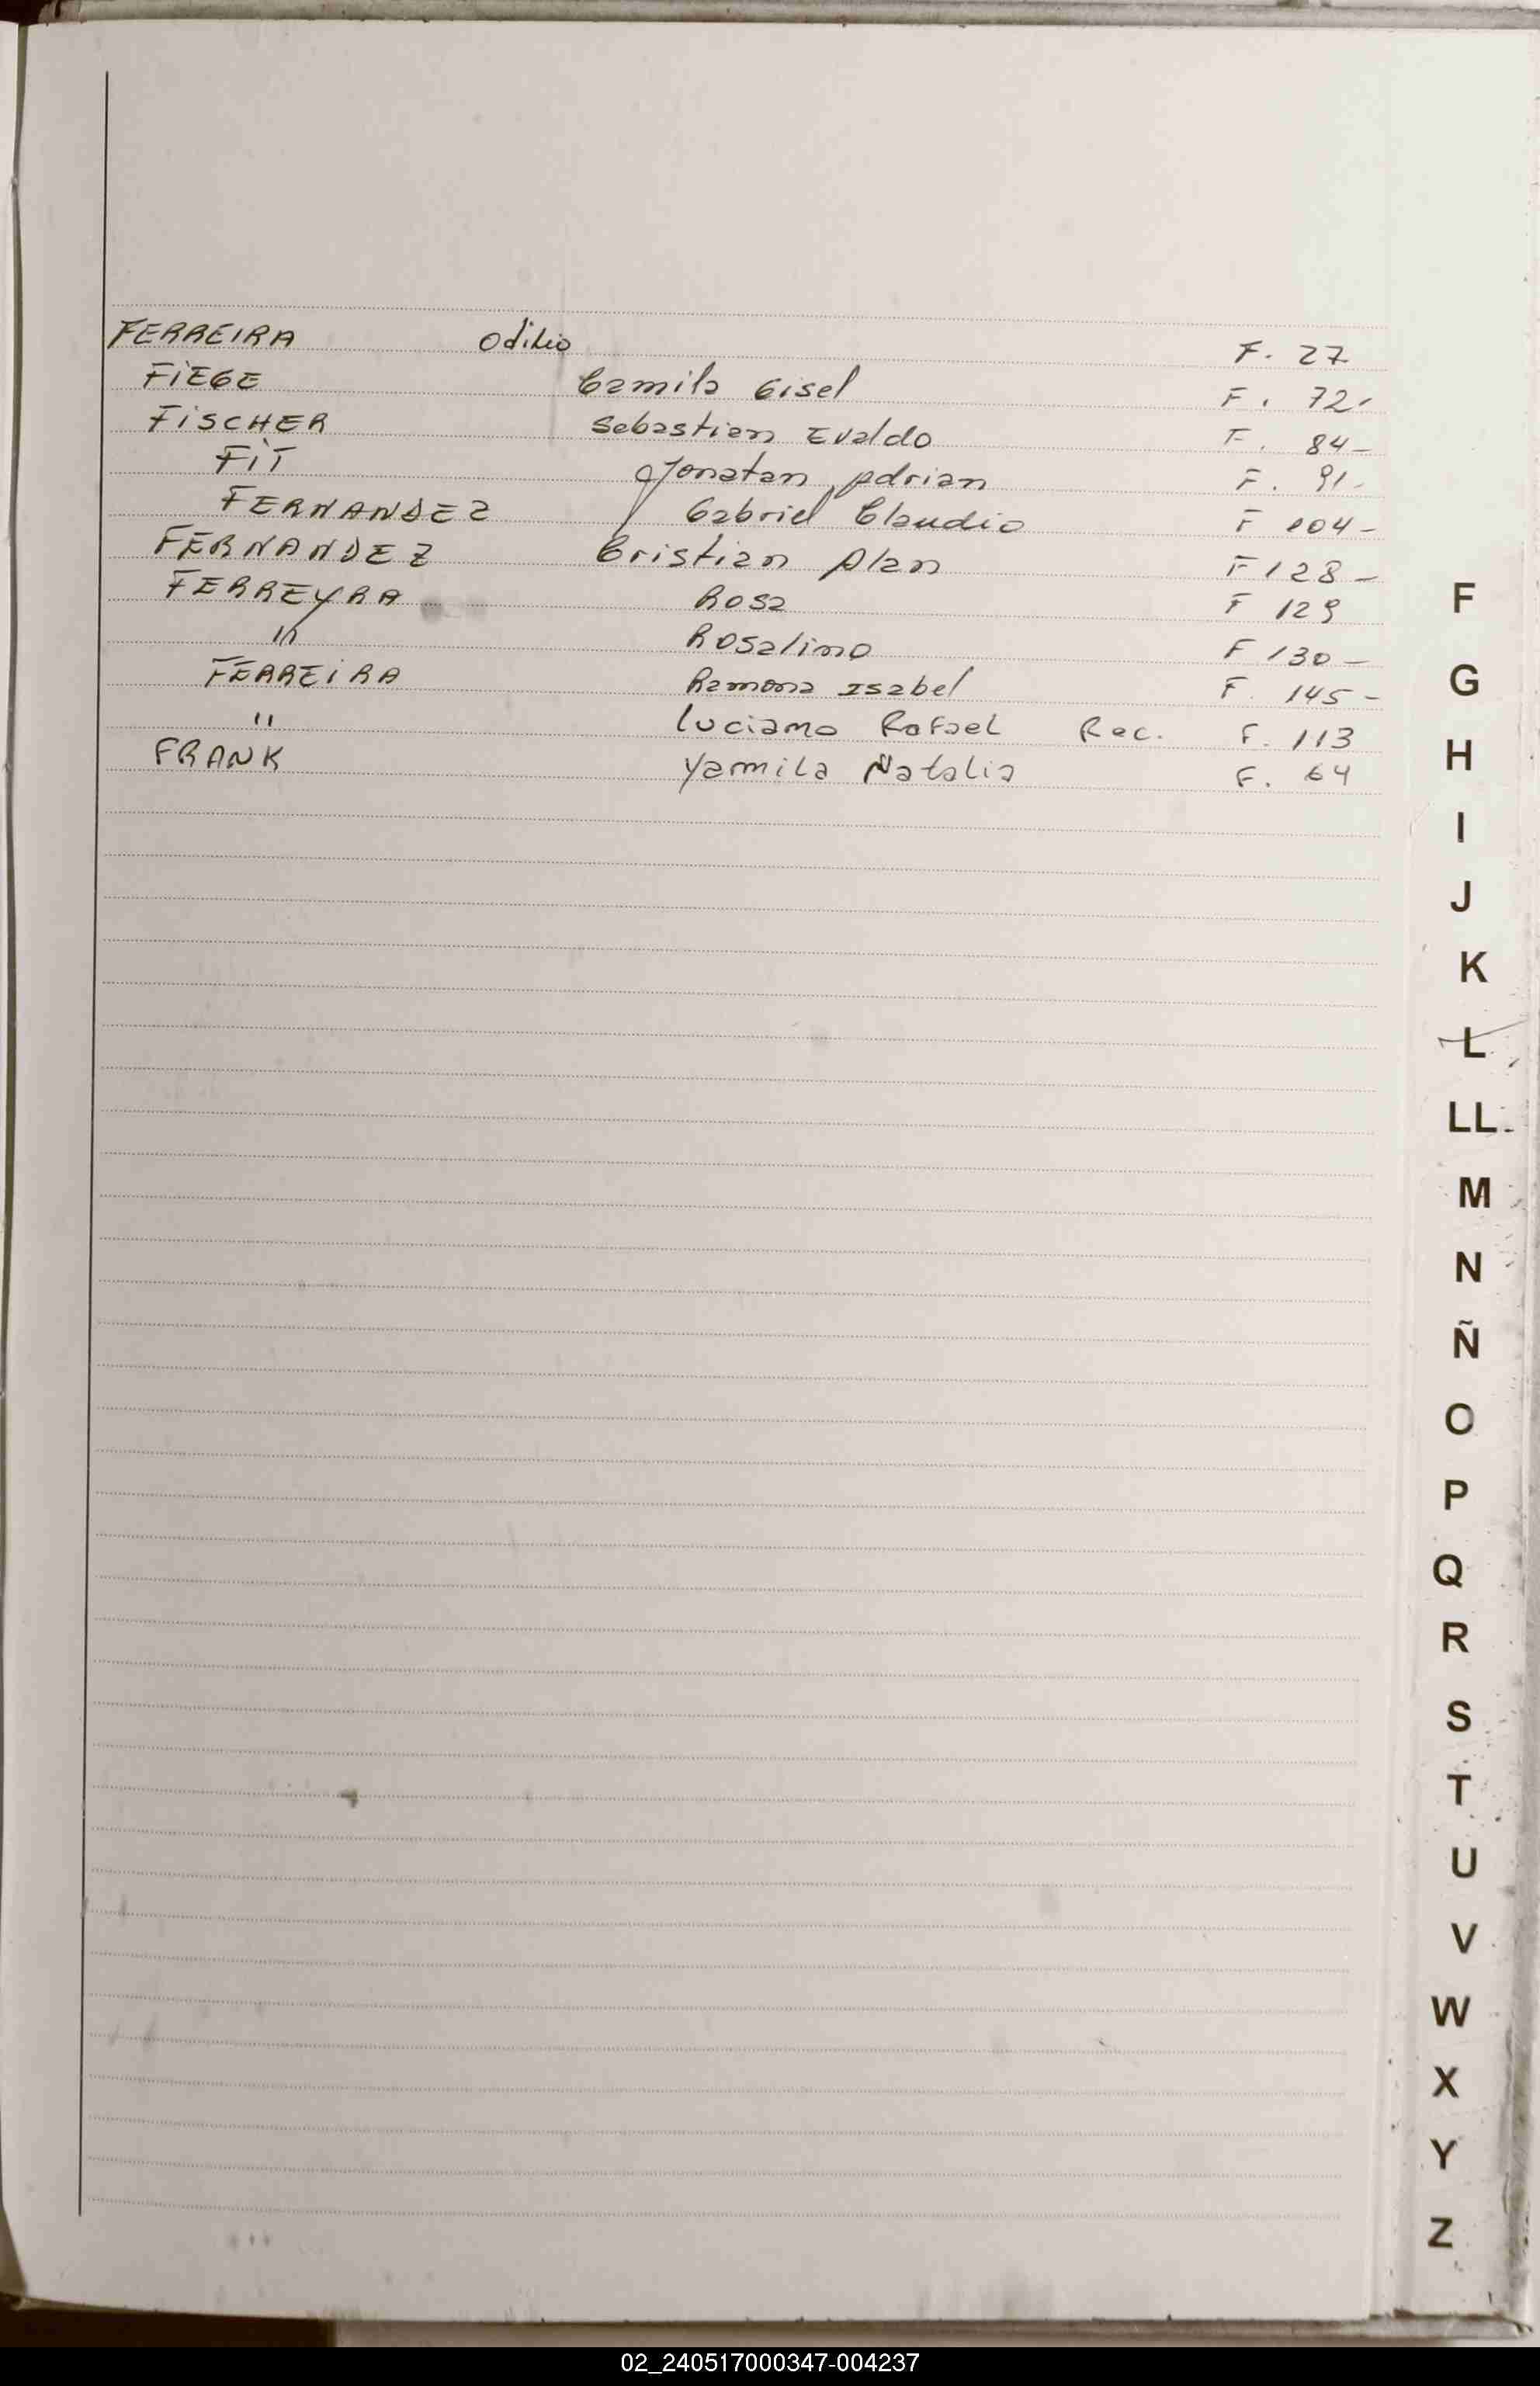 FERREIRA Odilio F. 27
FIEGE Camila Gisel F. 72-
FISCHER Sebastian Evaldo F. 84-
FIT Jonatan Adrian F. 91-
FERNANDEZ Gabriel Claudio F 104-
FERNANDEZ Cristian Alan F 128-
FERREYRA Rosa F 129
" Rosalino F 130-
FERREIRA Ramona Isabel F. 145-
" Luciano Rafael Rec. F. 113
FRANK Yamila Natalia F. 64
F
G
H
I
J
K
L
LL
M
N
Ñ
O
P
Q
R
S
T
U
V
W
X
Y
Z
02_240517000347-004237